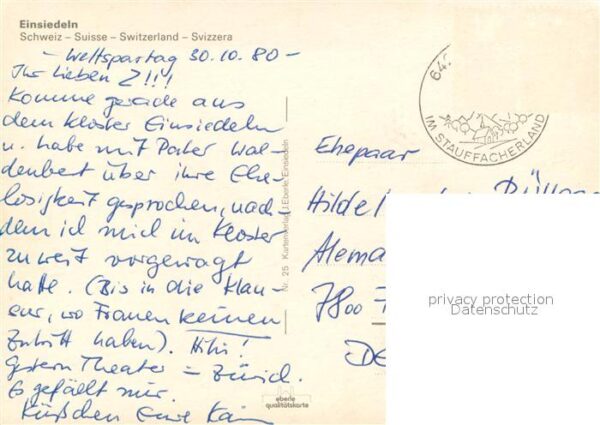 Einsiedeln
Schweiz – Suisse – Switzerland – Svizzera
- Weltspartag 30.10.80 -
Ihr lieben 2!!!!
Komme gerade aus
dem Kloster Einsiedeln
u. habe mit Pater Wal-
denbert über ihre Ehe-
losigkeit gesprochen, nach-
dem ich mich im Kloster
zu weit vorgewagt
hatte. (Bis in die Klau-
sur, wo Frauen keinen
Zutritt haben). Hihi!
Gestern Theater - Zürich.
Es gefällt mir.
Küßchen Eure
Nr. 25 Kartenverlag J. Eberle, Einsiedeln
eberle
qualitätskarte
64
IM STAUFFACHERLAND
Ehepaar
Hilde
Alema
7800
DE
privacy protection
Datenschutz